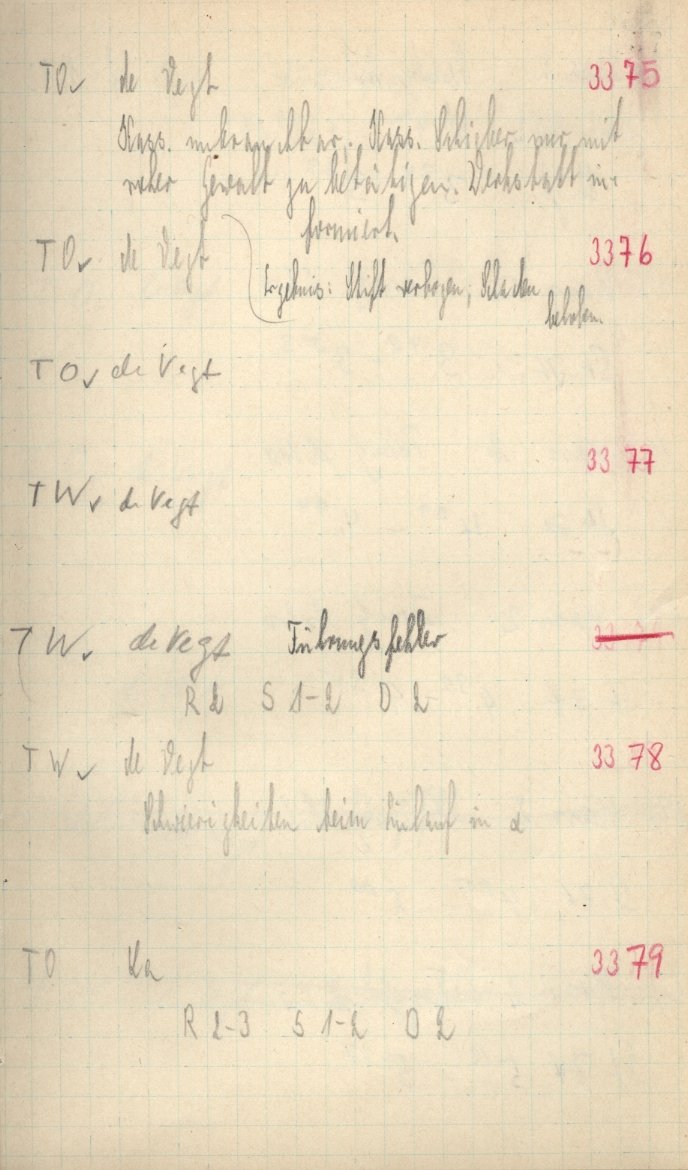 TO✓ de Vegt 3375
Kass. unbrauchbar. Kass. Schieber nur mit
roher Gewalt zu betätigen. Werkstatt in-
formiert.
TO✓ de Vegt 3376
Ergebnis: Stift verbogen; Schaden
behoben.
TO✓ de Vegt
3377
TW✓ de Vegt
TW✓ de Vegt Führungsfehler
R 2 S 1-2 D 2
TW✓ de Vegt 3378
Schwierigkeiten beim Einlauf in α
TO Ka 3379
R 2-3 S 1-2 D 2